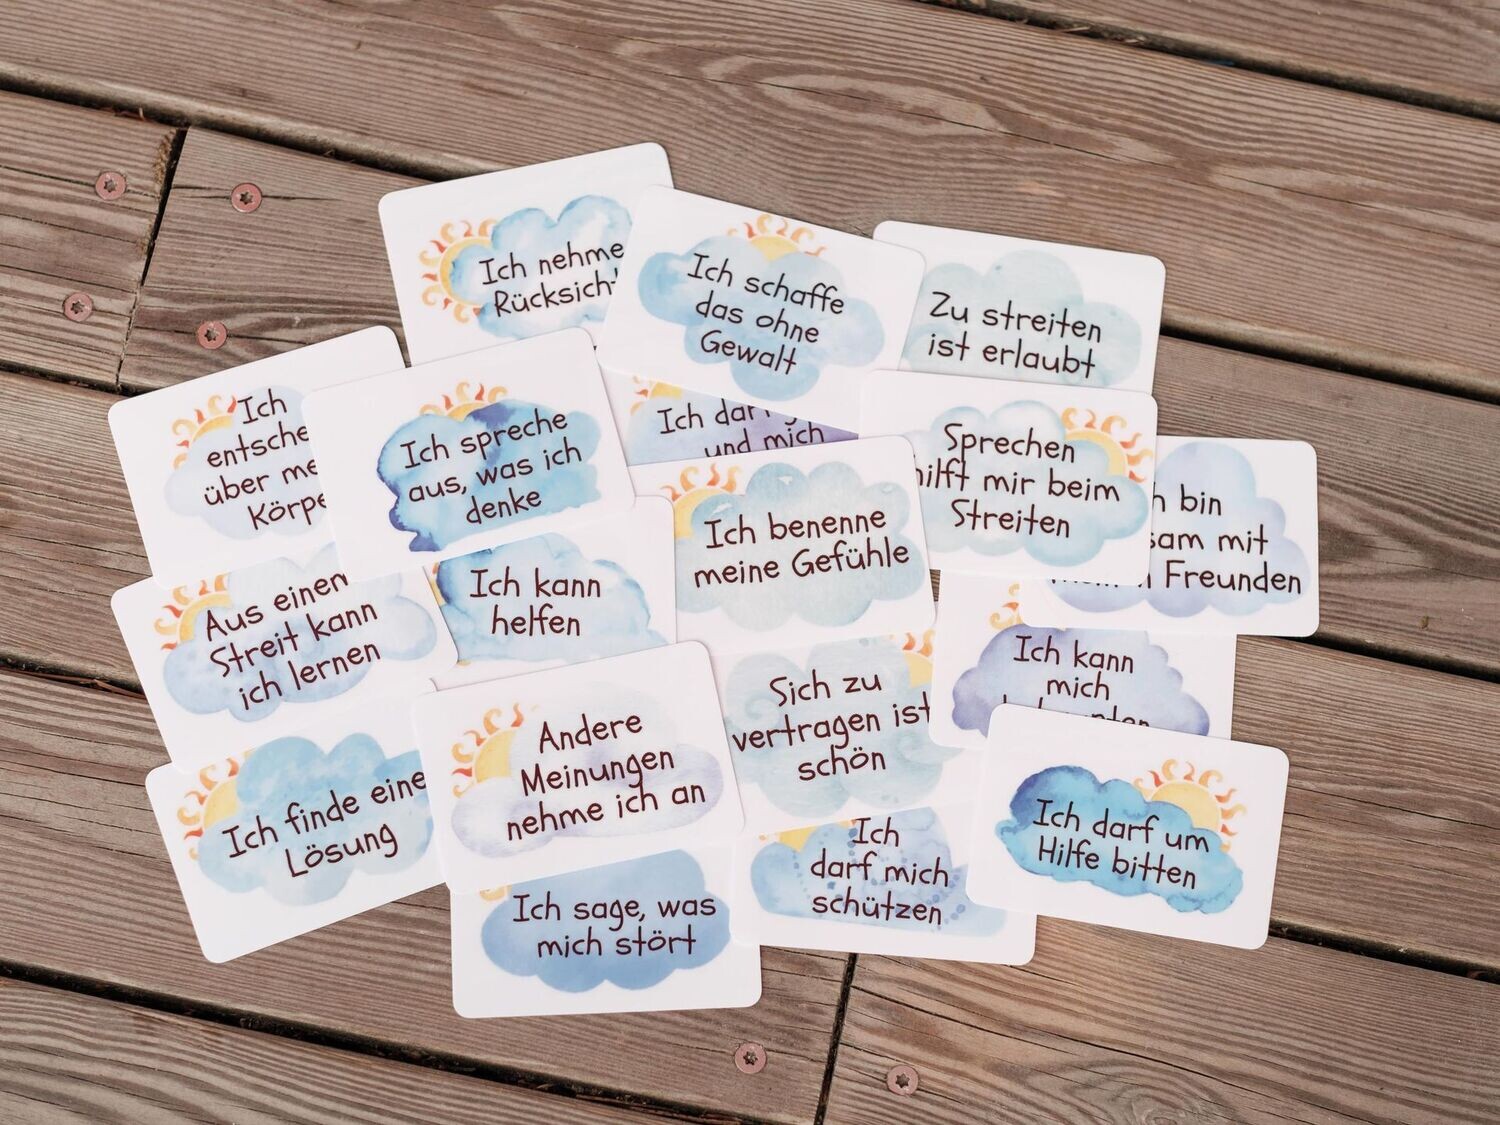 Ich nehme
Ich schaffe
das ohne
Gewalt
Zu streiten
ist erlaubt
Ich
über
Ich spreche
aus, was ich
denke
Ich
und mich
Sprechen
hilft mir beim
Streiten
bin
mit
Freunden
Ich benenne
meine Gefühle
Aus einem
Streit kann
ich lernen
Ich kann
helfen
Ich kann
mich
Sich zu
vertragen ist
schön
Andere
Meinungen
nehme ich an
Ich finde eine
Lösung
Ich darf um
Hilfe bitten
Ich
darf mich
schützen
Ich sage, was
mich stört